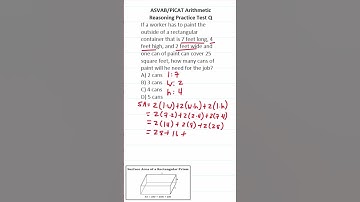 ASVAB/PiCAT Arithmetic
Reasoning Practice Test Q
If a worker has to paint the
outside of a rectangular
container that is 7 feet long, 4
feet high, and 2 feet wide and
one can of paint can cover 25
square feet, how many cans of
paint will he need for the job?
A) 2 cans l: 7
B) 3 cans w: 2
C) 4 cans h: 4
D) 5 cans
SA = 2(l·w) + 2(w·h) + 2(l·h)
= 2(7·2) + 2(2·4) + 2(7·4)
= 2(14) + 2(8) + 2(28)
= 28 + 16 +
Surface Area of a Rectangular Prism